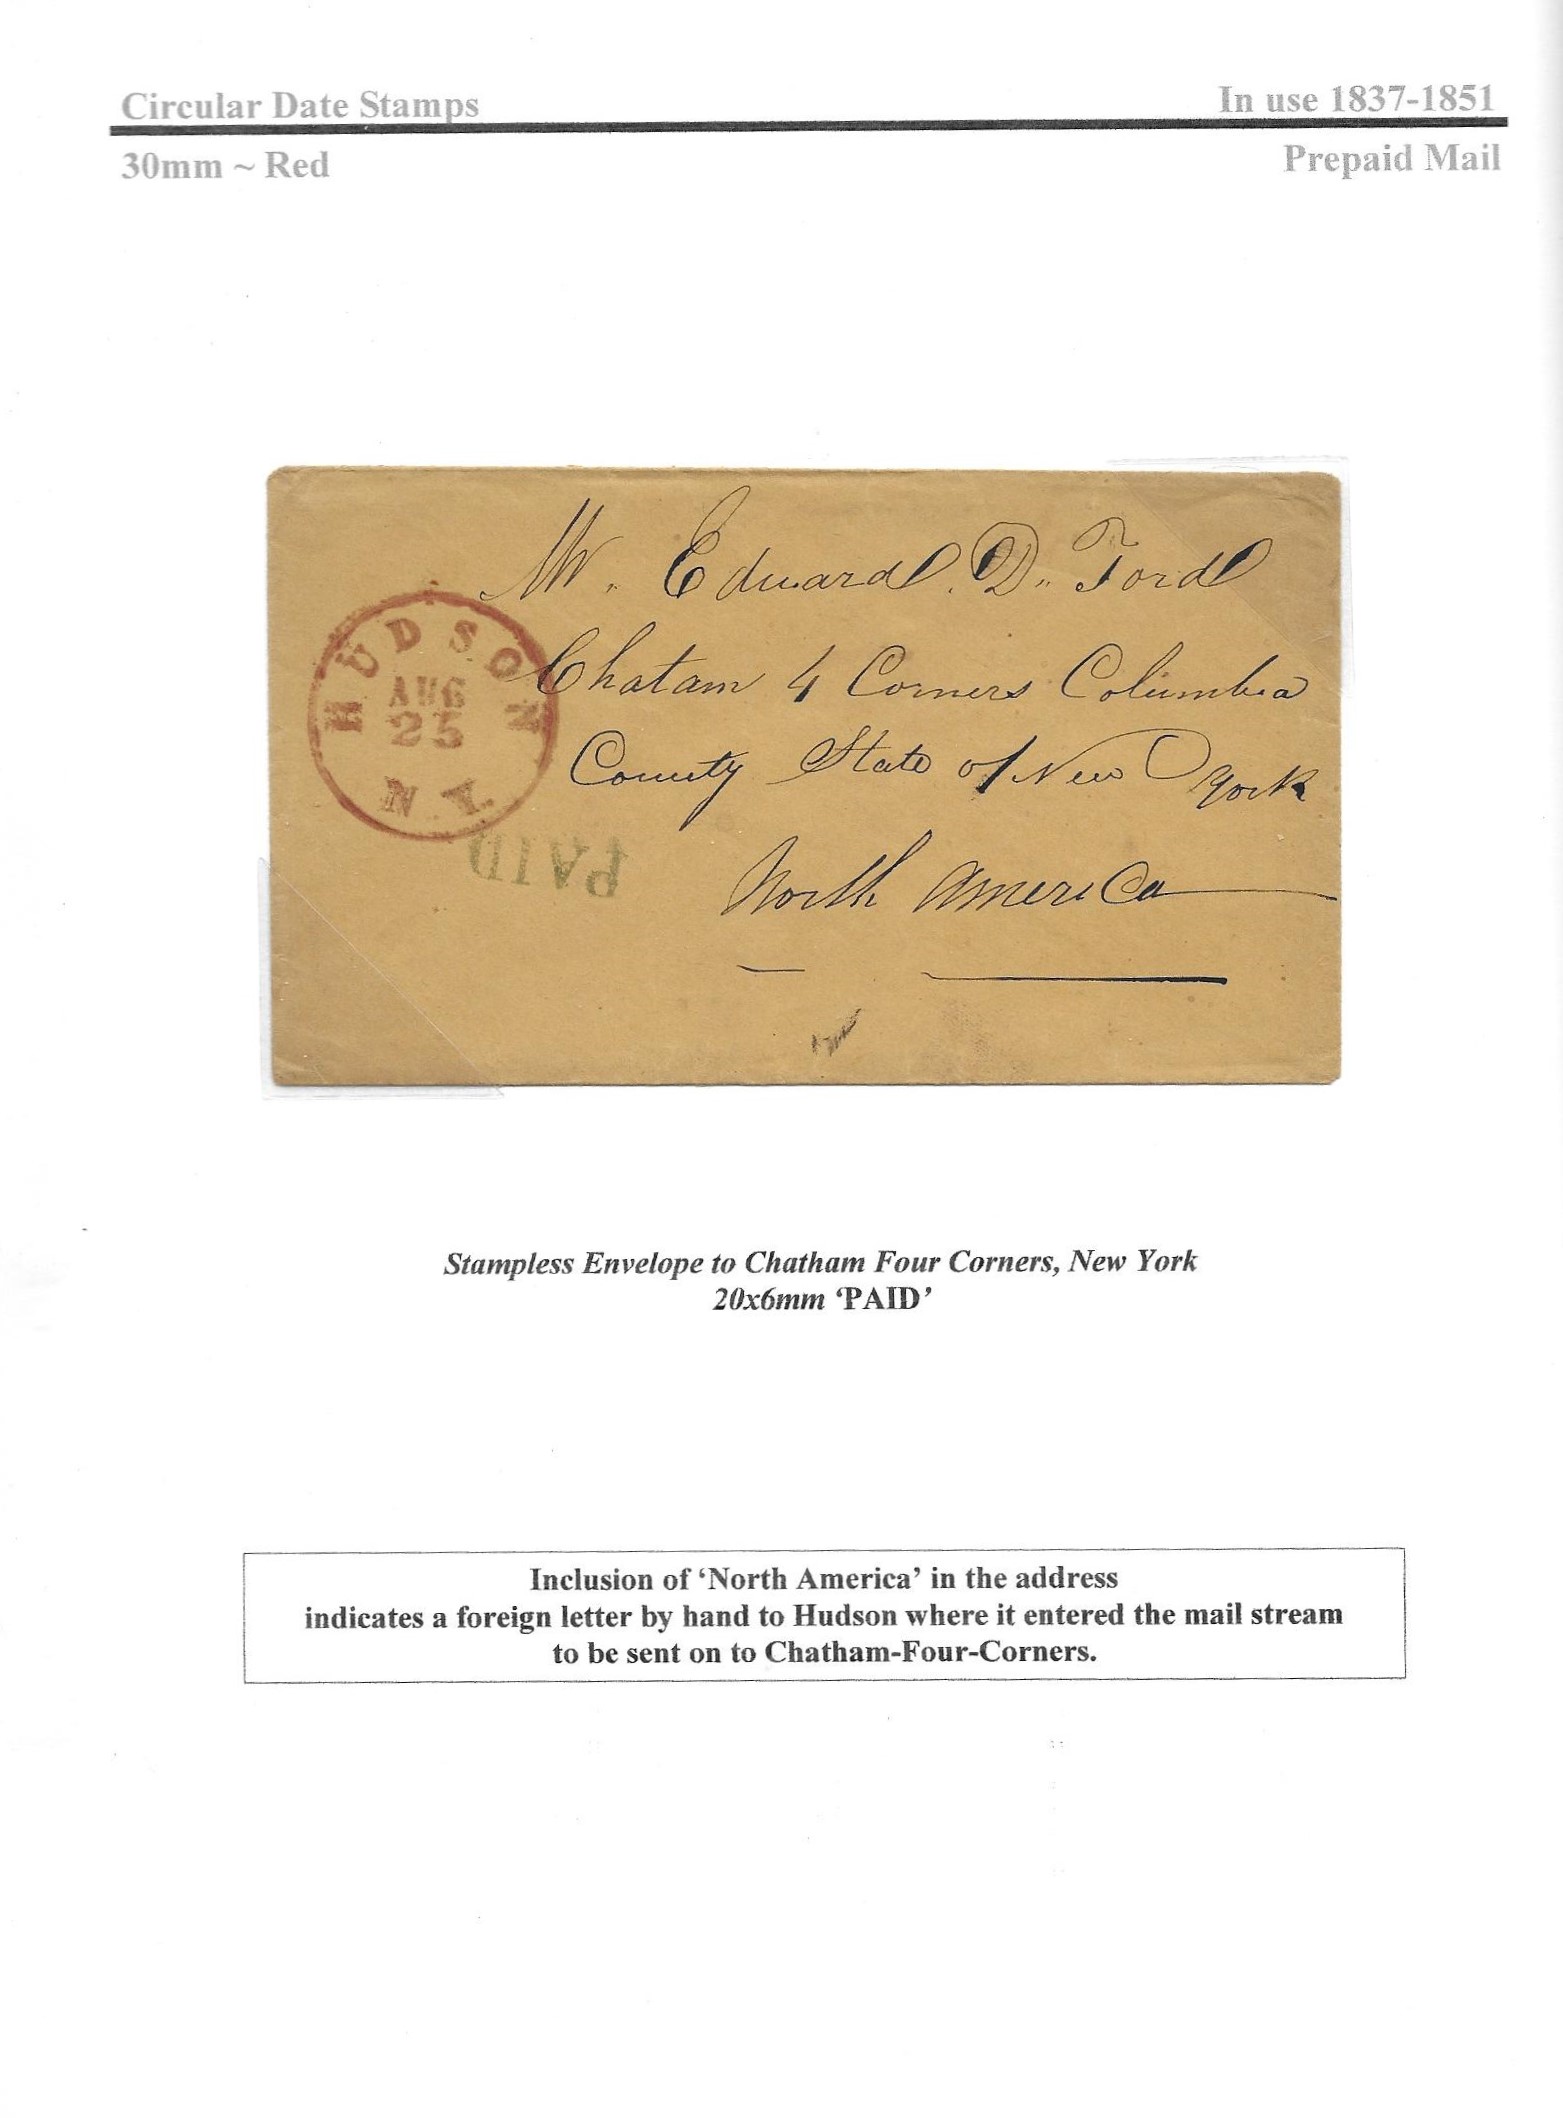 Circular Date Stamps
In use 1837-1851
30mm ~ Red
Prepaid Mail
Mr. Edward. D.. Ford
Chatam 4 Corners Columbia
County State of New York
North America
HUDSON
AUG
25
N.Y.
PAID
Stampless Envelope to Chatham Four Corners, New York
20x6mm ‘PAID’
Inclusion of ‘North America’ in the address
indicates a foreign letter by hand to Hudson where it entered the mail stream
to be sent on to Chatham-Four-Corners.